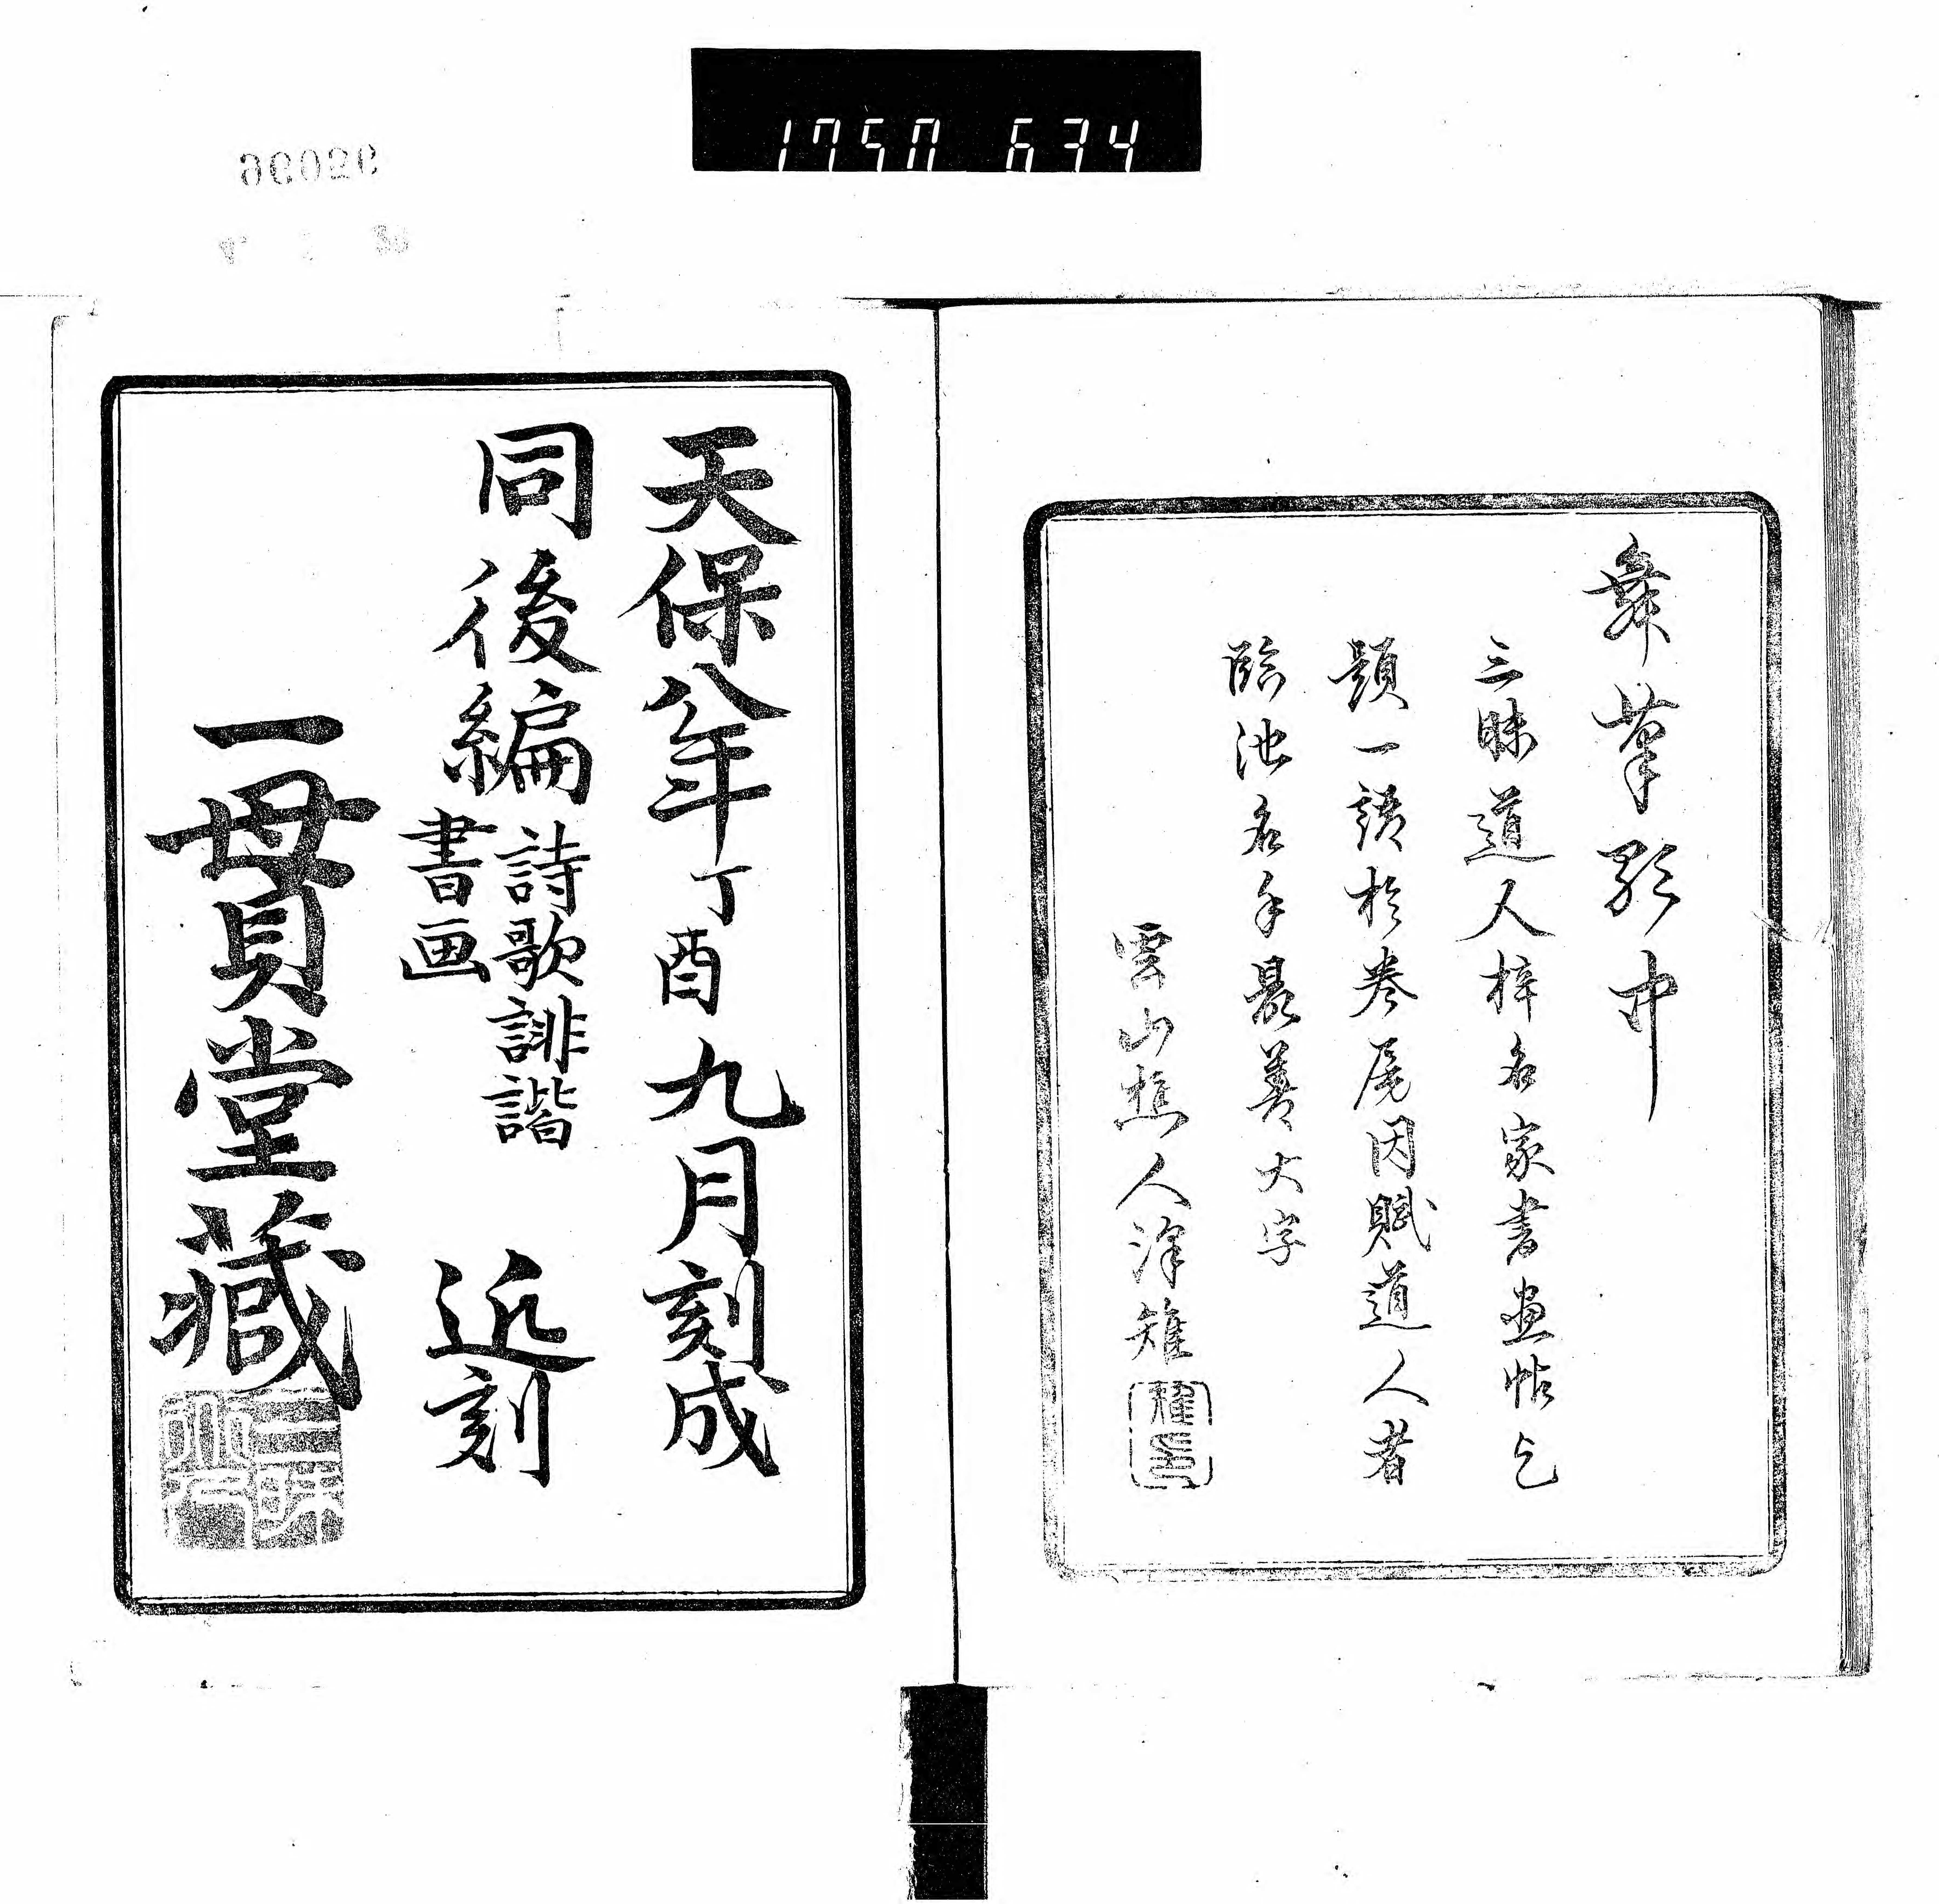 1750 634
舞筆影中
三昧道人梓名家書画帖乞
題一語於巻尾因賦道人者
臨池名手最善大字
雲山樵人澤雉
天保八年丁酉九月刻成
同後編詩歌誹諧書画 近刻
一貫堂藏